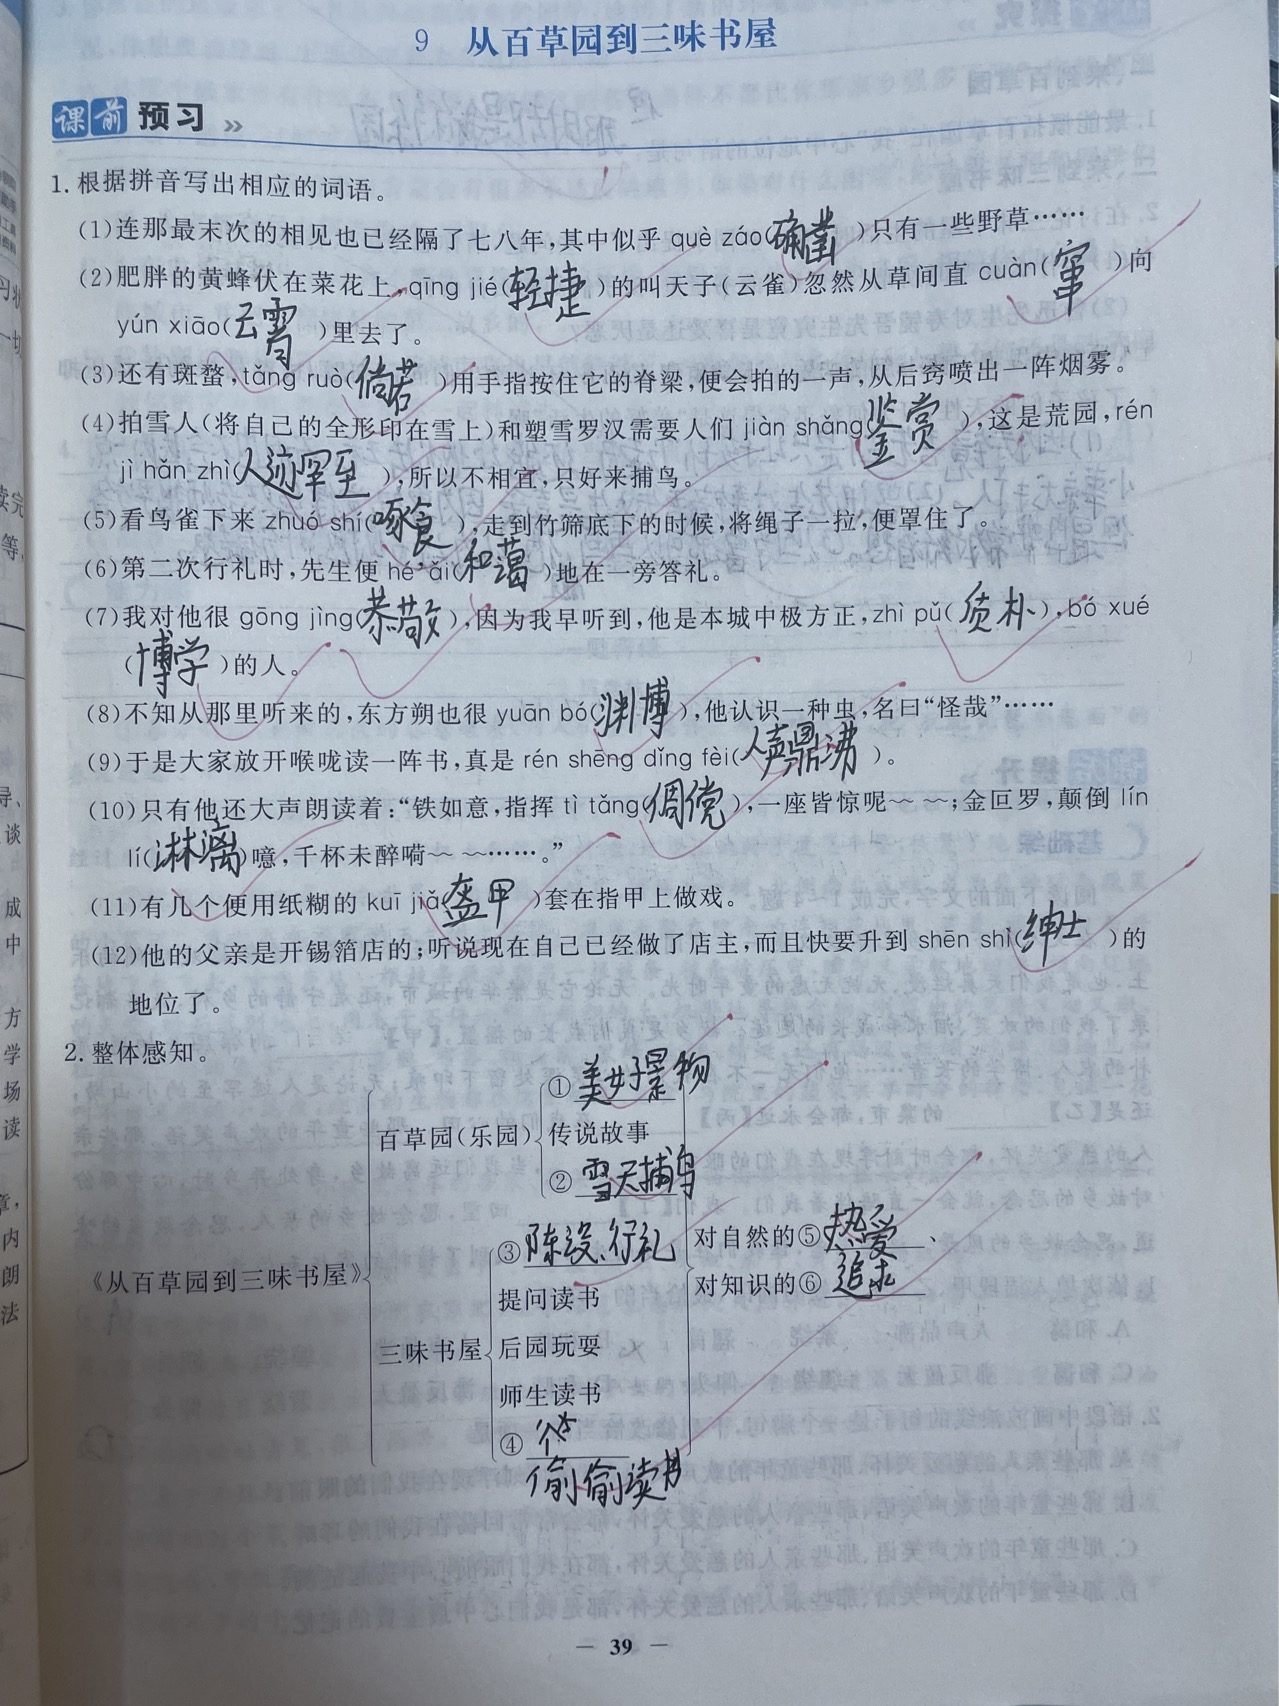 9 从百草园到三味书屋
课前 预习
1.根据拼音写出相应的词语。
(1)连那最末次的相见也已经隔了七八年,其中似乎 què záo(确凿)只有一些野草……
(2)肥胖的黄蜂伏在菜花上,qīng jié(轻捷)的叫天子(云雀)忽然从草间直 cuàn(窜)向
yún xiāo(云霄)里去了。
(3)还有斑蝥,tǎng ruò(倘若)用手指按住它的脊梁,便会拍的一声,从后窍喷出一阵烟雾。
(4)拍雪人(将自己的全形印在雪上)和塑雪罗汉需要人们 jiàn shǎng(鉴赏),这是荒园,rén
jì hǎn zhì(人迹罕至),所以不相宜,只好来捕鸟。
(5)看鸟雀下来 zhuó shí(啄食),走到竹筛底下的时候,将绳子一拉,便罩住了。
(6)第二次行礼时,先生便 hé ǎi(和蔼)地在一旁答礼。
(7)我对他很 gōng jìng(恭敬),因为我早听到,他是本城中极方正,zhì pǔ(质朴),bó xué
(博学)的人。
(8)不知从那里听来的,东方朔也很 yuān bó(渊博),他认识一种虫,名曰“怪哉”……
(9)于是大家放开喉咙读一阵书,真是 rén shēng dǐng fèi(人声鼎沸)。
(10)只有他还大声朗读着:“铁如意,指挥 tì tǎng(倜傥),一座皆惊呢～～;金叵罗,颠倒 lín
lí(淋漓)噫,千杯未醉嗬～～……。”
(11)有几个便用纸糊的 kuī jiǎ(盔甲)套在指甲上做戏。
(12)他的父亲是开锡箔店的;听说现在自己已经做了店主,而且快要升到 shēn shì(绅士)的
地位了。
2.整体感知。
《从百草园到三味书屋》
百草园(乐园)
①美好景物
传说故事
②雪天捕鸟
三味书屋
③陈设、行礼
提问读书
后园玩耍
师生读书
④
偷偷读书
对自然的⑤热爱、
对知识的⑥追求
— 39 —